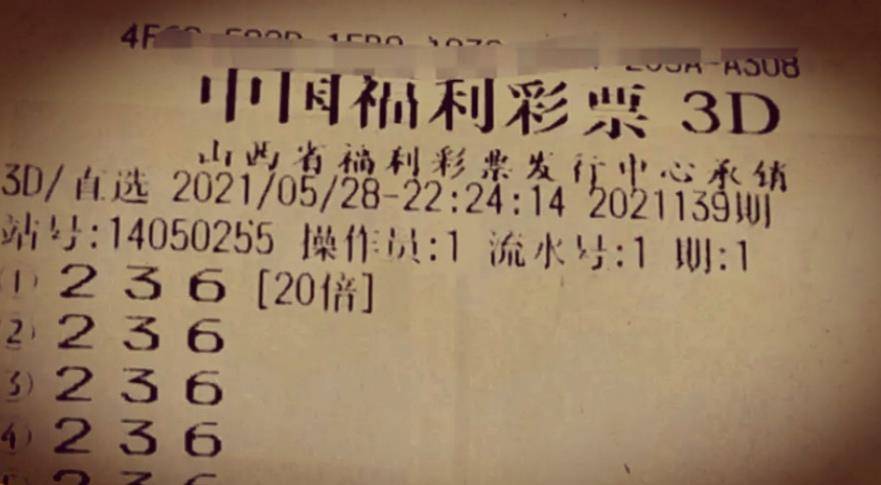 中国福利彩票 3D
山西省福利彩票发行中心承销
3D/直选 2021/05/28-22:24:14 2021139期
站号:14050255 操作员:1 流水号:1 期:1
① 2 3 6 [20倍]
2) 2 3 6
3) 2 3 6
4) 2 3 6